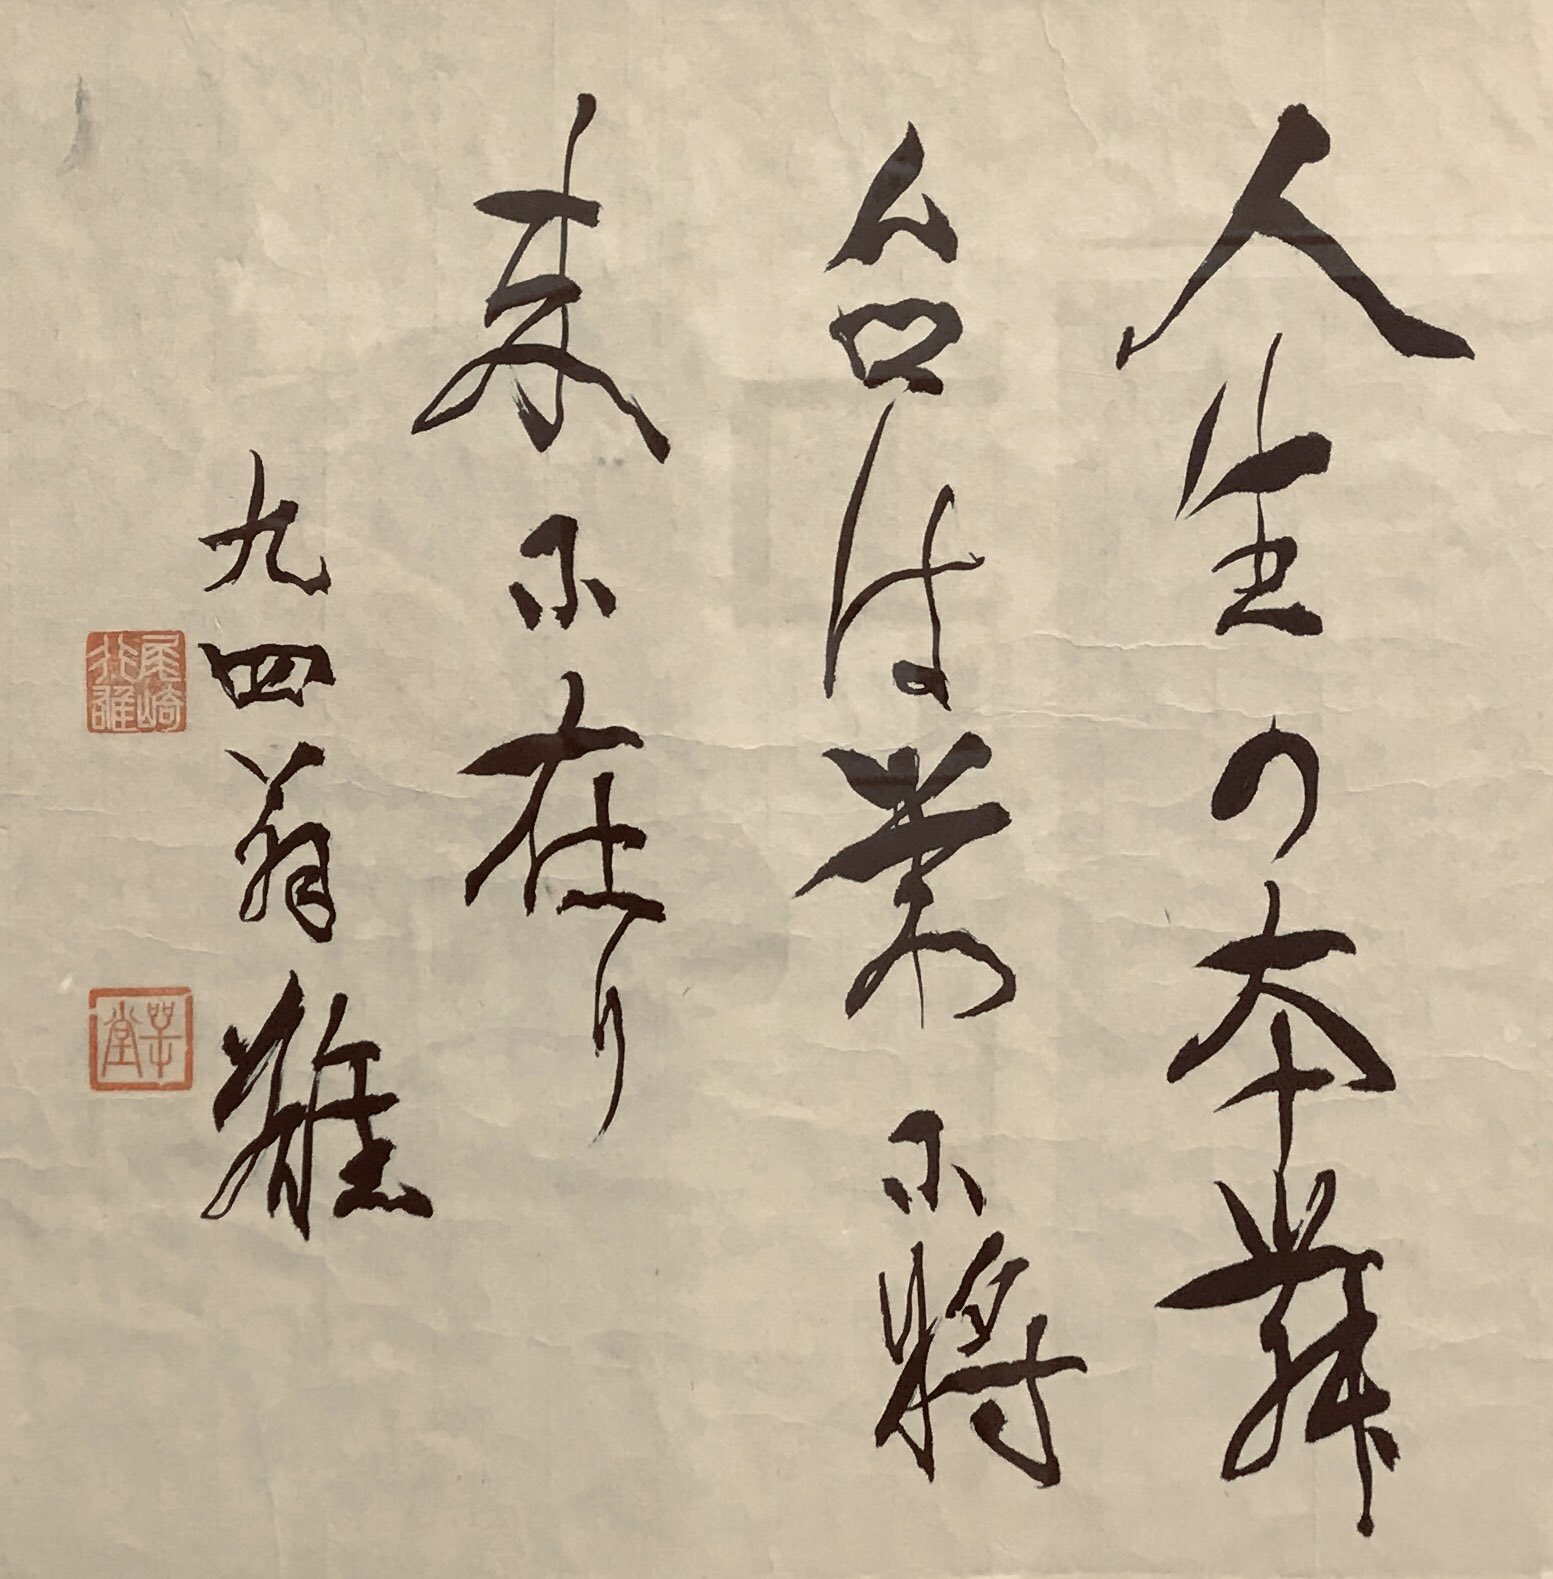 人生の本舞
台は常に將
来に在り
九四翁
尾崎行雄
咢堂